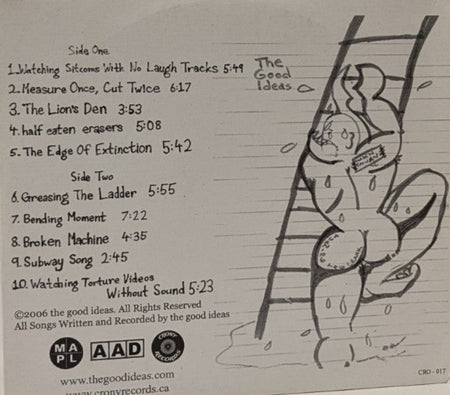 Side One
1. Watching Sitcoms With No Laugh Tracks 5:49
2. Measure Once, Cut Twice 6:17
3. The Lion's Den 3:53
4. half eaten erasers 5:08
5. The Edge Of Extinction 5:42
Side Two
6. Greasing The Ladder 5:55
7. Bending Moment 7:22
8. Broken Machine 4:35
9. Subway Song 2:45
10. Watching Torture Videos
Without Sound 5:23
©2006 the good ideas. All Rights Reserved
All Songs Written and Recorded by the good ideas
MAPL
AAD
CRONY RECORDS
www.thegoodideas.com
www.cronyrecords.ca
The
Good
Ideas
CRO - 017